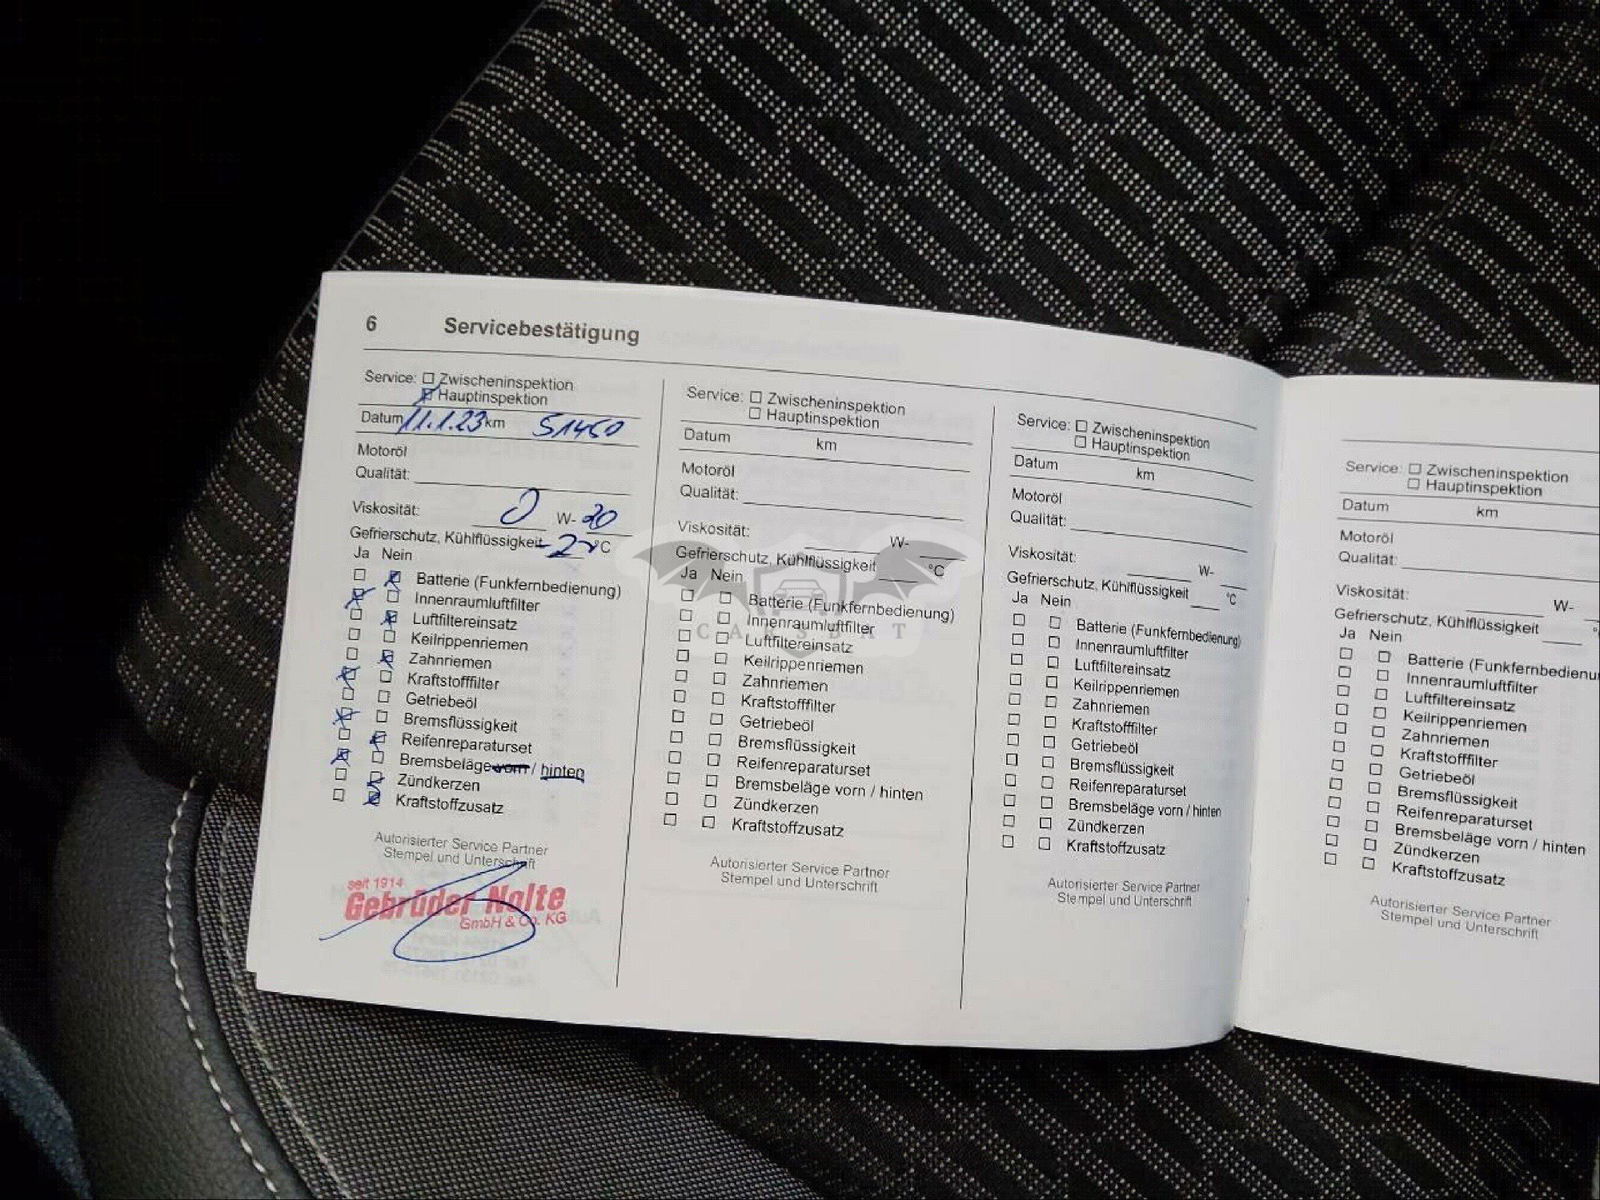 6 Servicebestätigung
Service: Zwischeninspektion
Hauptinspektion
Datum 11.1.23 km 51450
Motoröl
Qualität:
Viskosität: 0 W-
Gefrierschutz, Kühlflüssigkeit °C
Ja Nein
Batterie (Funkfernbedienung)
Innenraumluftfilter
Luftfiltereinsatz
Keilrippenriemen
Zahnriemen
Kraftstofffilter
Getriebeöl
Bremsflüssigkeit
Reifenreparaturset
Bremsbeläge vorn / hinten
Zündkerzen
Kraftstoffzusatz
Autorisierter Service Partner
Stempel und Unterschrift
seit 1914
Gebrüder Nolte
GmbH & Co. KG
Service: Zwischeninspektion
Hauptinspektion
Datum km
Motoröl
Qualität:
Viskosität: W-
Gefrierschutz, Kühlflüssigkeit °C
Ja Nein
Batterie (Funkfernbedienung)
Innenraumluftfilter
Luftfiltereinsatz
Keilrippenriemen
Zahnriemen
Kraftstofffilter
Getriebeöl
Bremsflüssigkeit
Reifenreparaturset
Bremsbeläge vorn / hinten
Zündkerzen
Kraftstoffzusatz
Autorisierter Service Partner
Stempel und Unterschrift
CARSBAT
Service: Zwischeninspektion
Hauptinspektion
Datum km
Motoröl
Qualität:
Viskosität: W-
Gefrierschutz, Kühlflüssigkeit °C
Ja Nein
Batterie (Funkfernbedienung)
Innenraumluftfilter
Luftfiltereinsatz
Keilrippenriemen
Zahnriemen
Kraftstofffilter
Getriebeöl
Bremsflüssigkeit
Reifenreparaturset
Bremsbeläge vorn / hinten
Zündkerzen
Kraftstoffzusatz
Autorisierter Service Partner
Stempel und Unterschrift
Service: Zwischeninspektion
Hauptinspektion
Datum km
Motoröl
Qualität:
Viskosität: W-
Gefrierschutz, Kühlflüssigkeit
Ja Nein
Batterie (Funkfernbedienu
Innenraumluftfilter
Luftfiltereinsatz
Keilrippenriemen
Zahnriemen
Kraftstofffilter
Getriebeöl
Bremsflüssigkeit
Reifenreparaturset
Bremsbeläge vorn / hinten
Zündkerzen
Kraftstoffzusatz
Autorisierter Service Partner
Stempel und Unterschrift